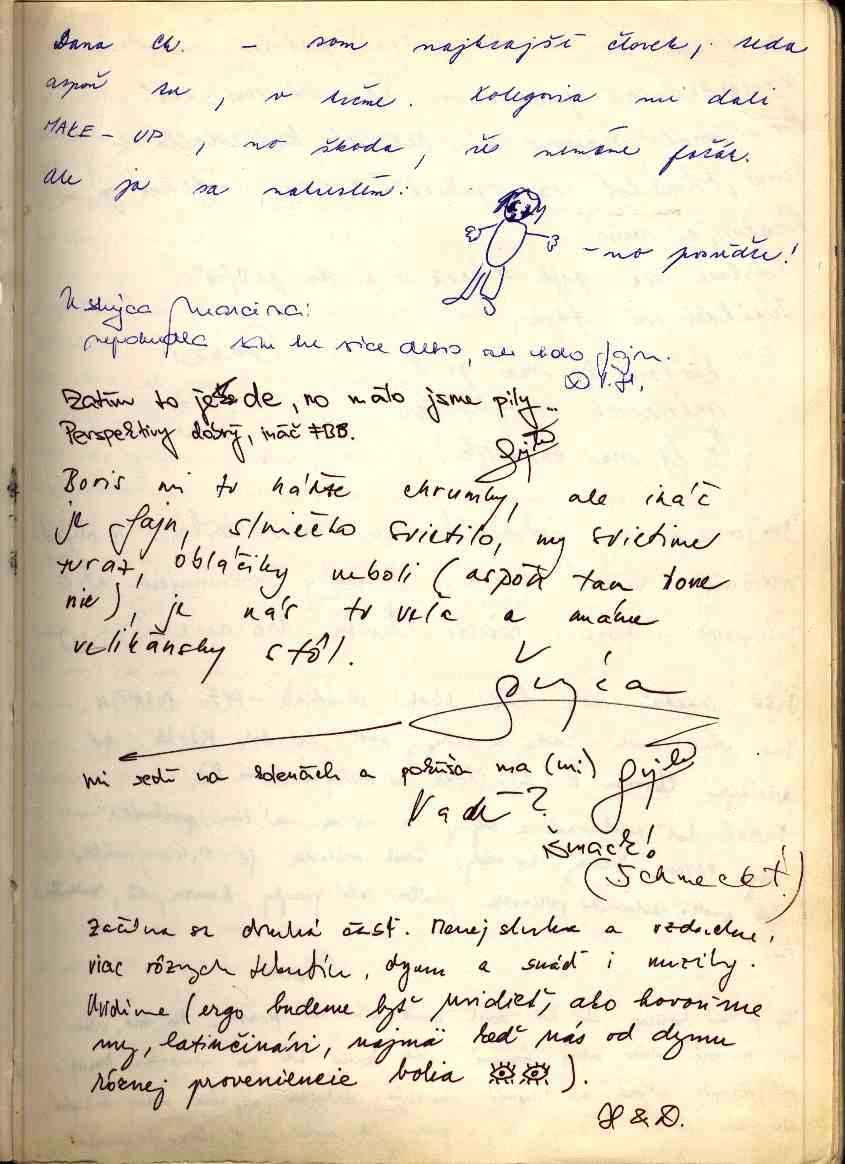 Dana Ch. – som najkrajší človek, teda
aspoň tu, v . Kolegovia mi dali
MAKE-UP, no škoda, že nemáme foťák.
Ale ja sa nakreslím:
– no posúďte!
sice dobro, ale fajn.
Zatím to ještě de, no málo jsme pily...
Perspektivy dobrý, ináč #BB.
Gyťo
Boris mi tu hádže chrumky, ale ináč
je fajn, slniečko svietilo, my svietime
teraz, obláčiky neboli (aspoň tam hore
nie), je nás tu veľa a máme
velikánsky stôl.
mi sedí na kolenách a pokúša ma (mi)
Vadí?
Šmack!
(Schmeckt!)
Začína sa druhá časť. Menej slnka a vzduchu,
viac rôznych tekutín, dymu a snáď i muziky.
Uvidíme (ergo budeme byť uvidieť, ako hovoríme
my, latinčinári, najmä keď nás od dymu
rôznej proveniencie bolia ).
H & D.